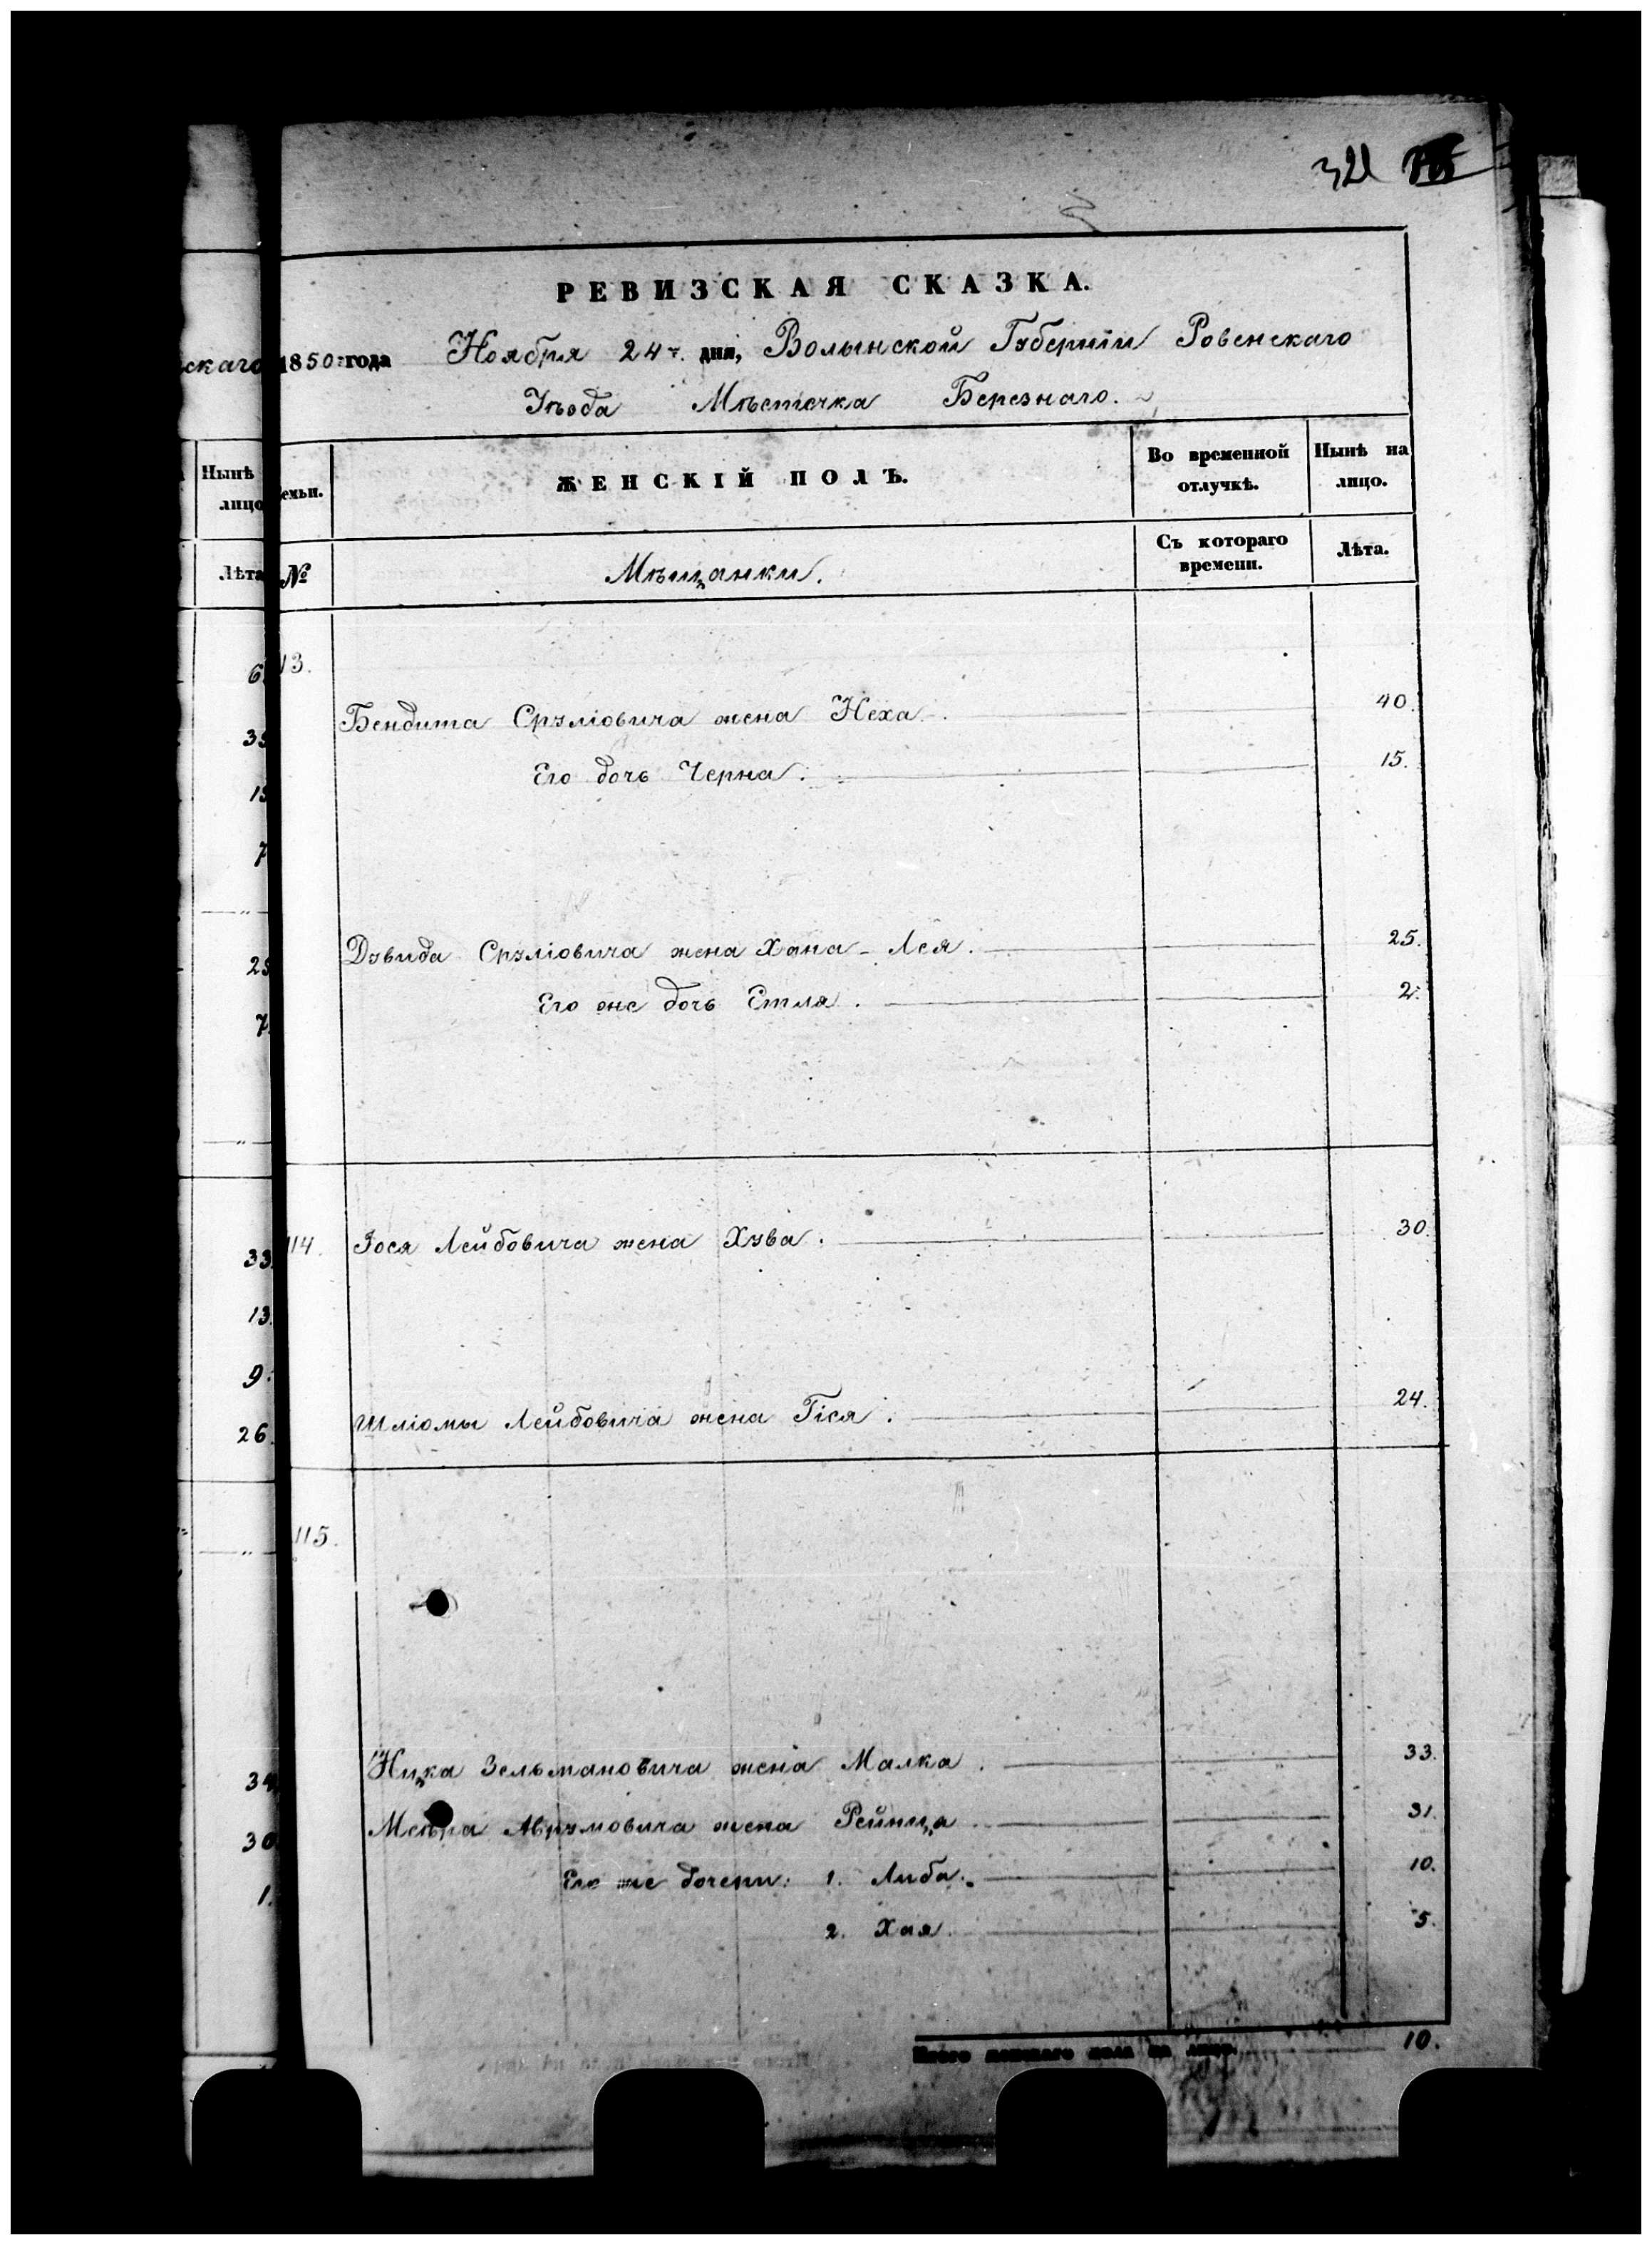 321
РЕВИЗСКАЯ СКАЗКА.
скаго 1850 года Ноября 24 дня, Волынской Губерніи Ровенскаго
Уѣзда Мѣстечка Березнаго.
Нынѣ лицо
Семьи.
ЖЕНСКІЙ ПОЛЪ.
Во временной отлучкѣ.
Нынѣ на лицо.
Лѣта
№
Мѣщанки.
Съ котораго времени.
Лѣта.
113.
Бендита Срулiовича жена Неха. 40.
Его дочь Черна. 15.
Дувида Срулiовича жена Хана-Лея. 25.
Его же дочь Етля. 2.
114. Іося Лейбовича жена Хува. 30.
Шліомы Лейбовича жена Гіся. 24.
115.
Ицка Зельмановича жена Малка. 33.
Меера Аврумовича жена Рейница 31.
Его же дочери: 1. Либа. 10.
2. Хая. 5.
Итого женскаго пола на лицо. 10.
33
13.
9.
26.
34
30
1.